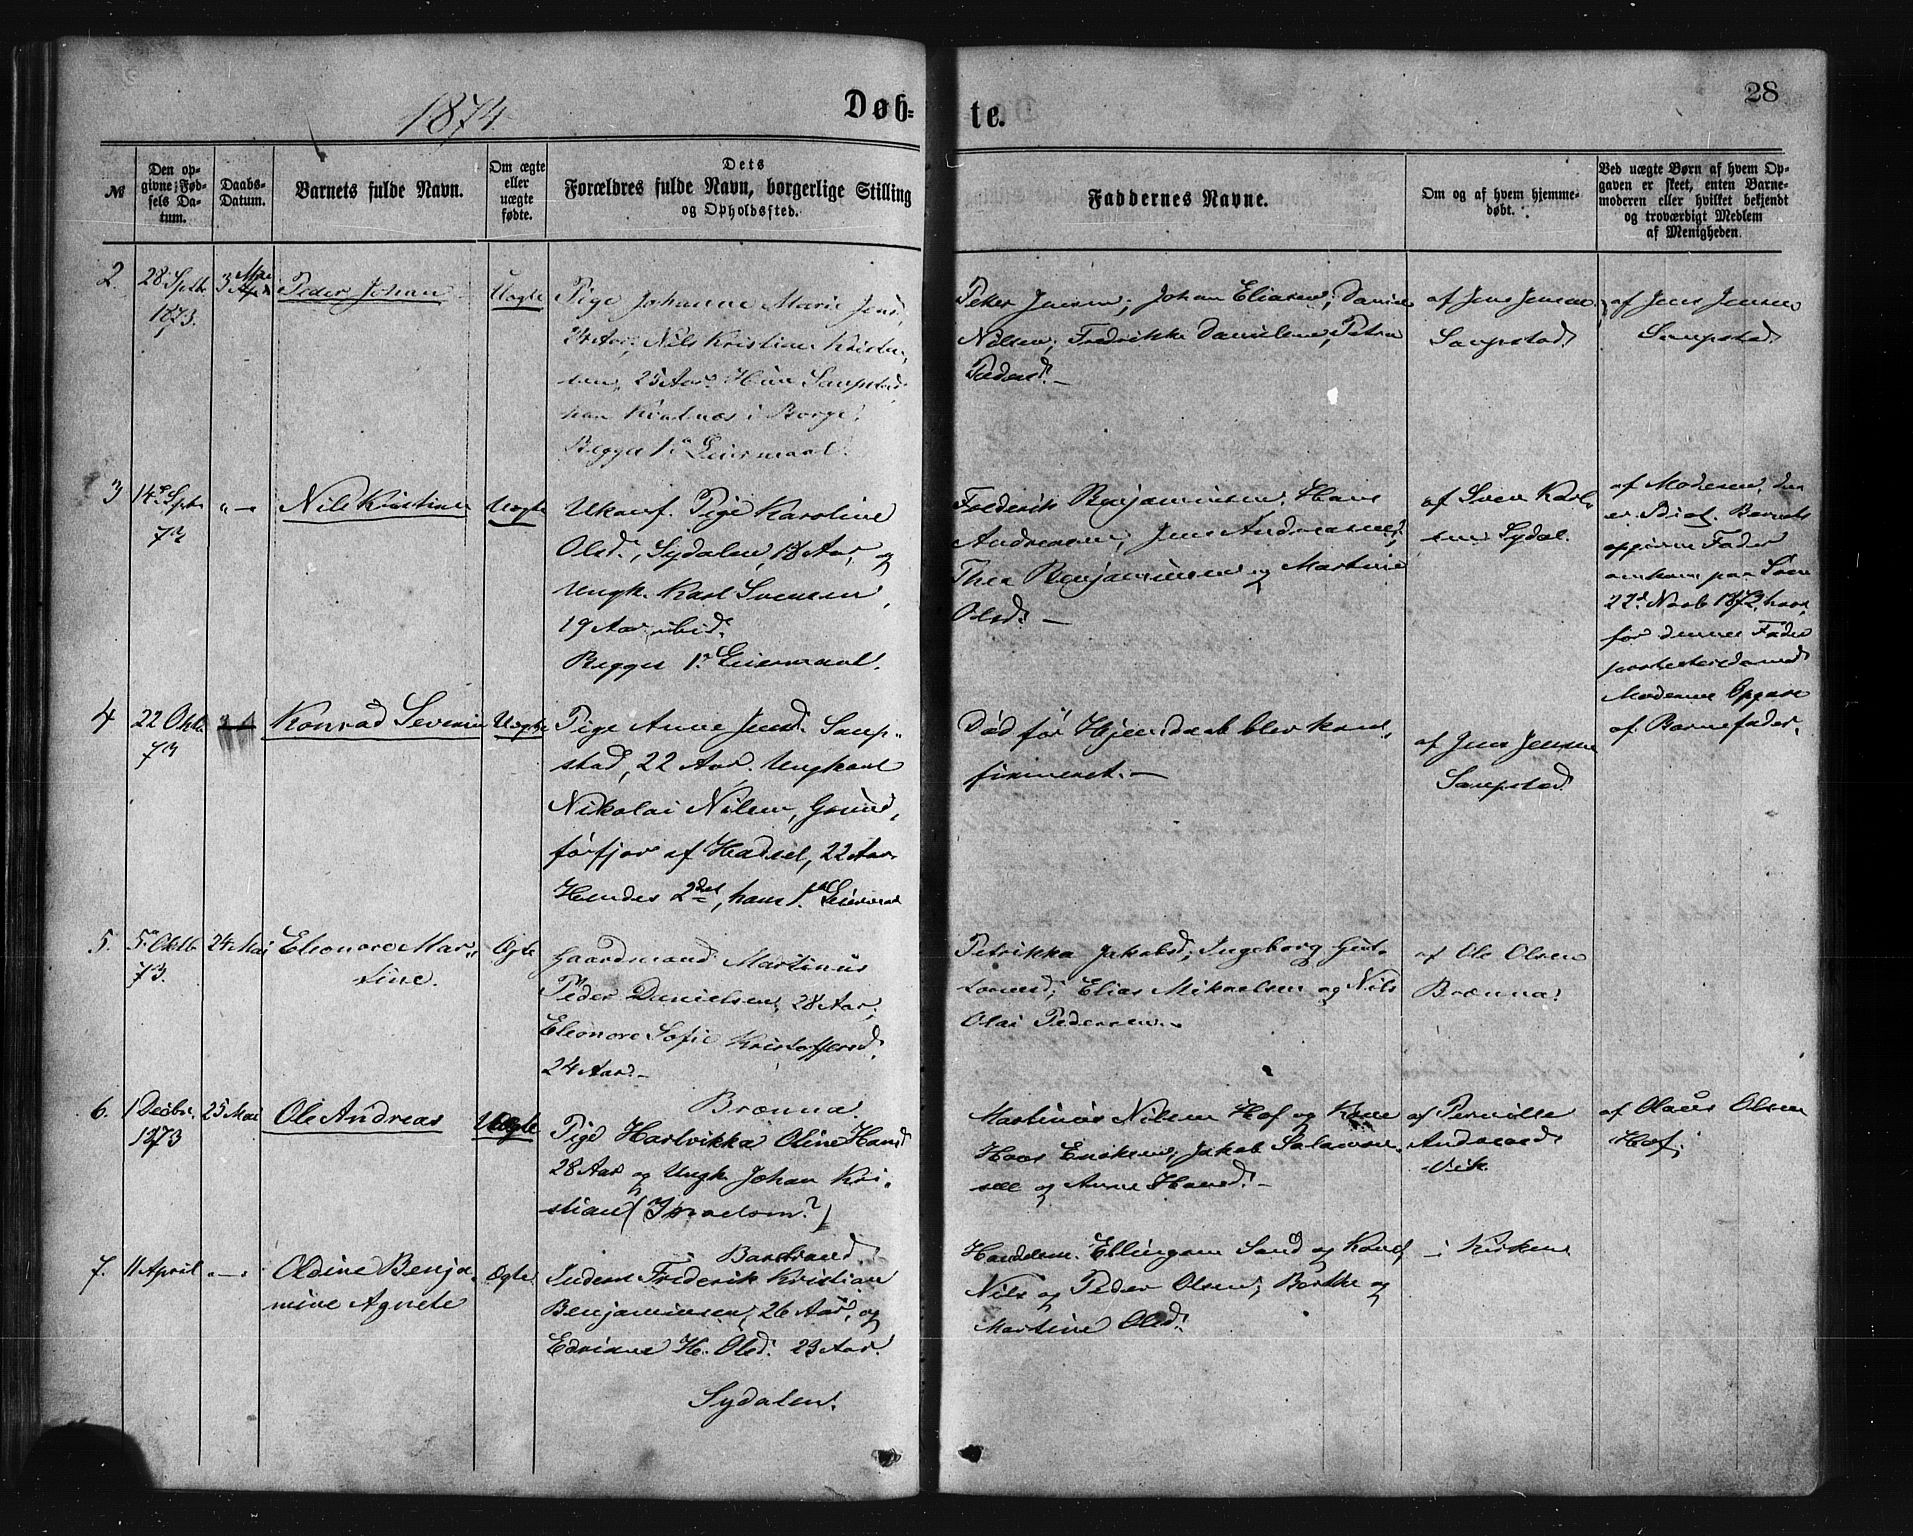 1874
Døb-
te.
28
№
Den op-
givne Fød-
sels Da-
tum.
Daabs-
Datum.
Barnets fulde Navn.
Om ægte
eller
uægte
fødte.
Dets
Forældres fulde Navn, borgerlige Stilling
og Opholdssted.
Faddernes Navne.
Om og af hvem hjemme-
døbt.
Ved uægte Børn af hvem Op-
gaven er skeet, enten Barne-
moderen eller hvilket bekjendt
og troværdigt Medlem
af Menigheden.
2.
28 Septb.
1873.
3 Mai
Peder Johan
Uægte
Pige Johanne Marie Jensd.
24 Aar, Nils Kristian Kristen-
sen, 25 Aar. Hun Saupstad
han Kvalnæs i Borge.
Begges 1ste Leiermaal.
Peter Jensen, Johan Eliasen, Daniel
Nilsen, Fredrikke Danielsen, Petra
Pedersd. –
af Jens Jensen
Saupstad
af Jens Jensen
Saupstad
3
14de Septb.
73
„–„
Nils Kristian
Uægte
Ukonf. Pige Karoline
Olsd., Sydalen, 18 Aar, og
Ungk. Karl Svensen,
19 Aar, ibid.
Begges 1ste Leiermaal.
Frederik Benjaminsen, Hans
Andreasen, Jens Andreasen,
Thea Benjaminsen og Martine
Olsd. –
af Sven Karl-
sen Sydal.
af Moderen, der
er Idiot. Barnets
opgivne Fader
omkom paa Søen
22de Novb 1872, hvor-
for dennes Fader
protesterede mod
Moderens Opgave
af Barnefader.
4
22 Oktb.
73
Konrad Severin
Uægte
Pige Anne Jensd. Saup-
stad, 22 Aar. Ungkarl
Nikolai Nilsen, Grund-
førfjor af Hadsel, 22 Aar
Hendes 2det, hans 1ste Leiermaal
Død før Hjemdaab blev kon-
firmeret. –
af Jens Jensen
Saupstad
5.
5 Oktb.
73.
24 Mai
Eleonore Mar-
tine.
Ægte
Gaardmand Martinus
Peder Danielsen, 28 Aar,
Eleonore Sofie Kristoffersd.
24 Aar. –
Brænna.
Petrikka Jakobsd., Ingeborg Gut-
tormsd., Elias Mikaelsen og Nils
Olai Pedersen. –
af Ole Olsen
Brænna.
6.
1 Decbr.
1873
25 Mai
Ole Andreas
Uægte
Pige Hartvikka Oline Hansd.
28 Aar og Ungk. Johan Kri-
stian (Israelsen?)
Barstrand.
Martinus Nilsen Hof og Kone
Hans Eriksen, Jakob Salomon-
sen og Anne Hansd. –
af Pernille
Andreasd.
Vik
af Olaus Olsen
Hof.
7.
11 April
„–„
Oldine Benja-
mine Agnete
Ægte
Inderst Frederik Kristian
Benjaminsen, 26 Aar, og
Edrikke H. Olsd. 23 Aar.
Sydalen.
Handelsm. Ellingsen Sund og Kone
Nils og Peder Olsen, Berthe og
Martine Olsd.
i Kirken